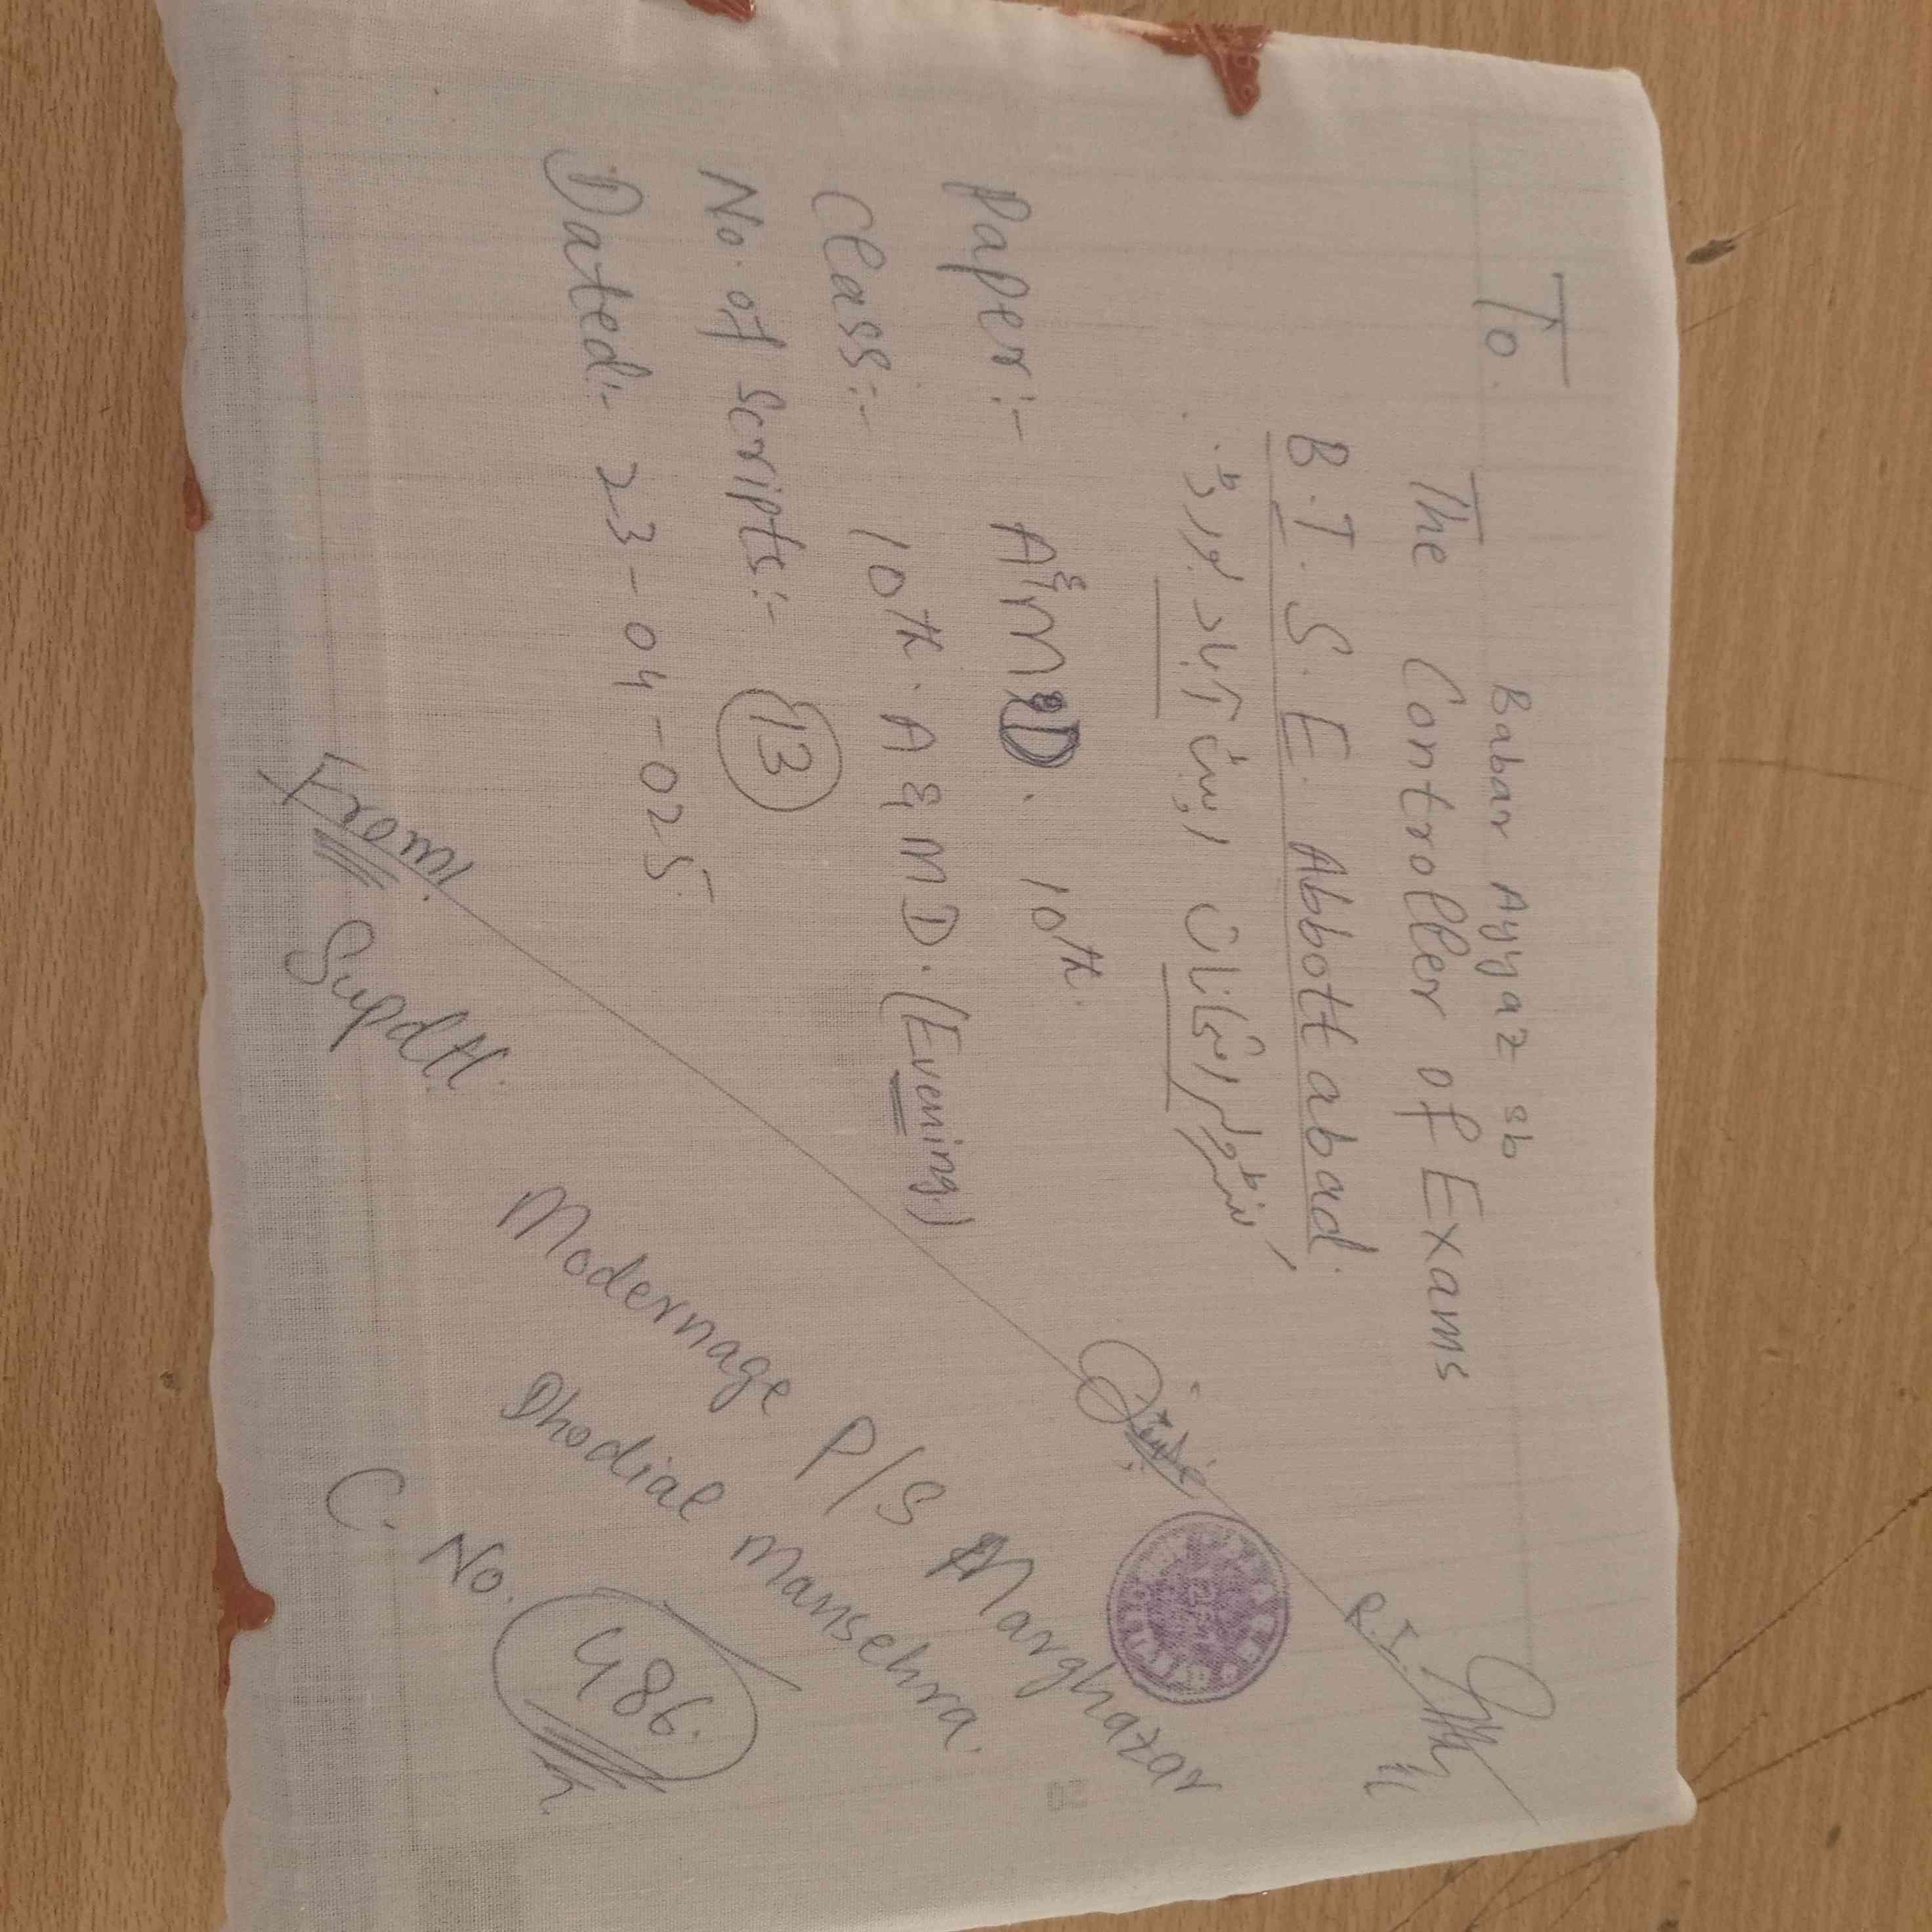 To.
Babar Ayyaz sb
The Controller of Exams
B.I.S.E. Abbottabad.
کنٹرولر امتحانات ایبٹ آباد بورڈ.
Paper:- A & MD. 10th.
Class:- 10th. A & MD. (Evening)
No. of scripts:- 13
Dated:- 23-04-025
R.I.
From:
Supdtt.
Modernage P/S Marghazar
Dhodial Mansehra.
C. No. 486.